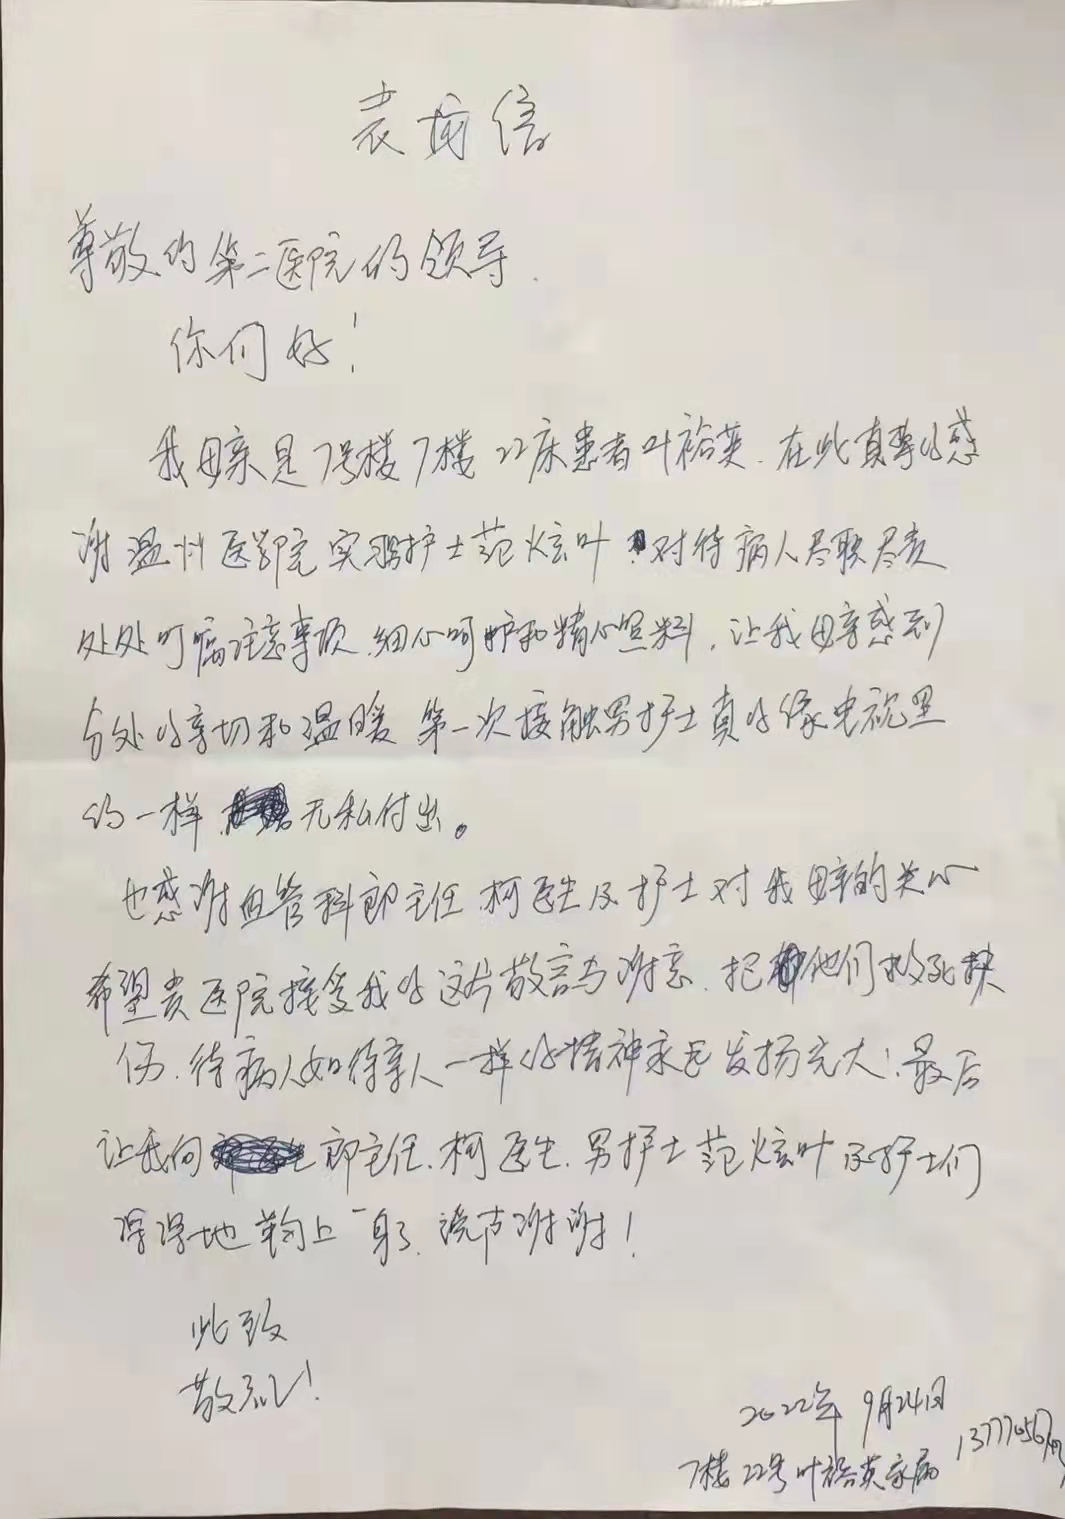 表扬信
尊敬的第二医院的领导.
你们好！
我母亲是7号楼7楼22床患者叶裕英.在此真挚的感
谢温州医学院实习护士范炫叶对待病人尽职尽责
处处叮嘱注意事项.细心呵护和精心照料，让我母亲感到
处的亲切和温暖 第一次接触男护士真的像电视里
的一样 无私付出。
也感谢血管科郎主任.柯医生及护士对我母亲的关心
希望贵医院接受我的这片敬言与谢意.把他们救死扶
伤.待病人如待亲人一样的精神永远发扬光大！最后
让我向郎主任.柯医生.男护士范炫叶及护士们
深深地鞠上一身了.说声谢谢！
此致
敬礼！
2022年9月24日
7楼22号叶裕英家属